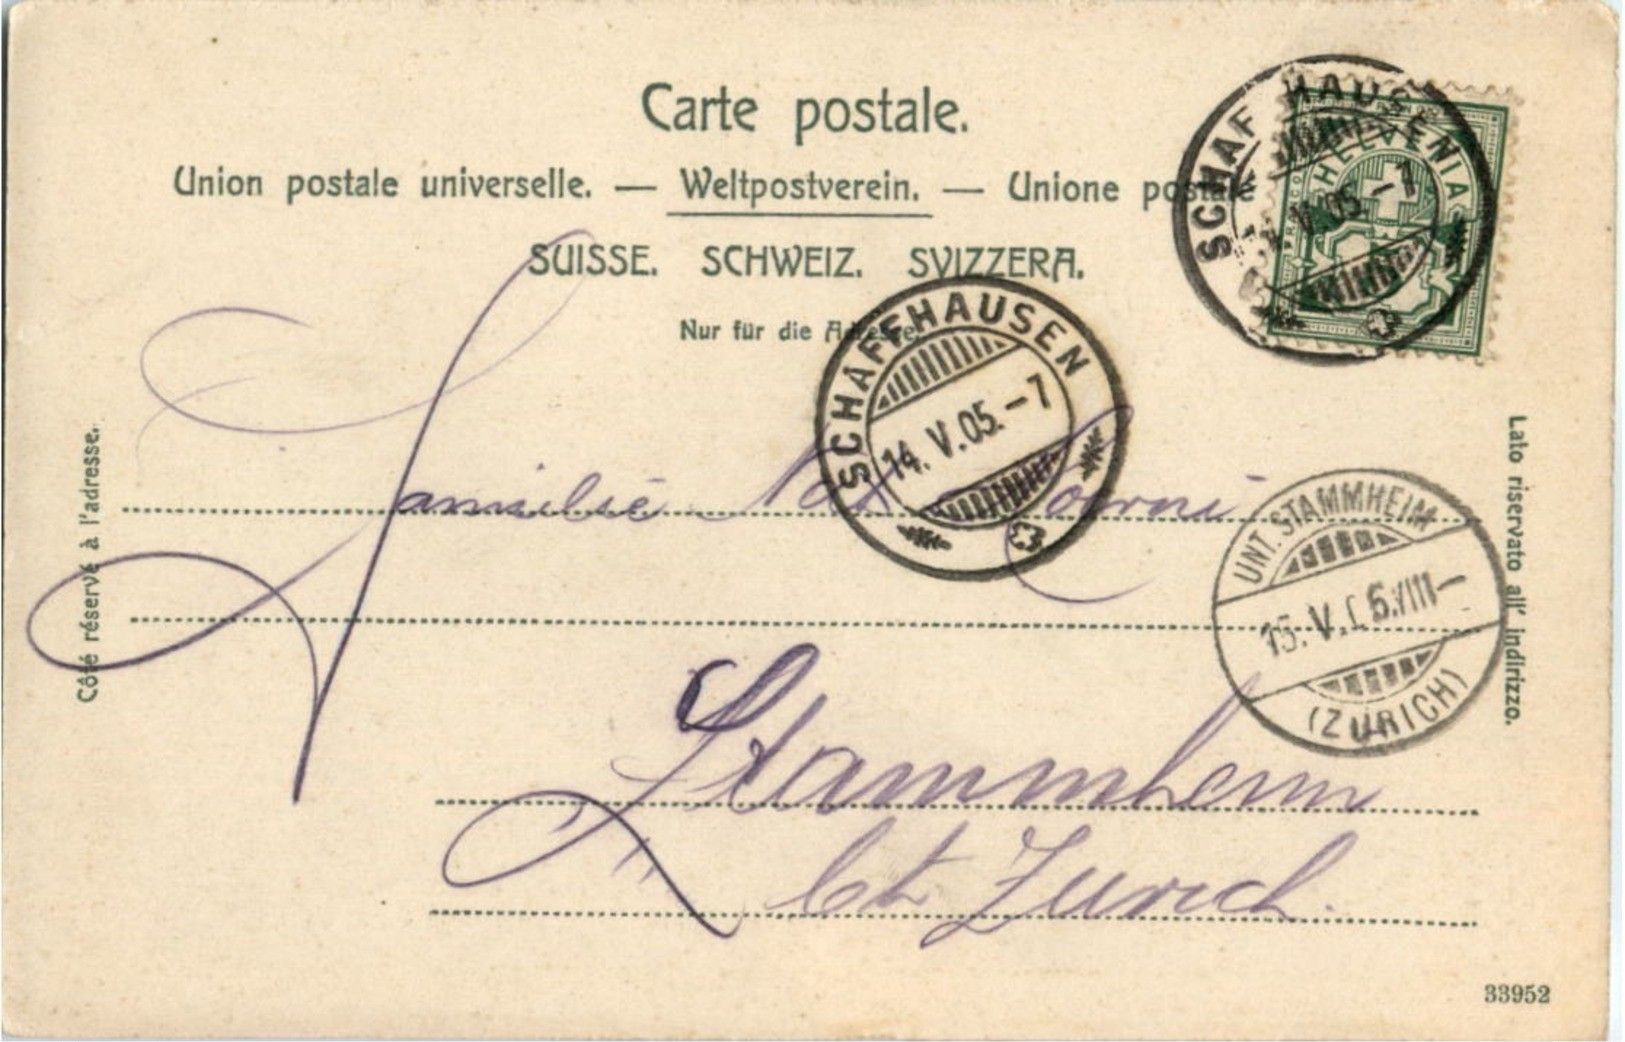 Carte postale.
Union postale universelle. — Weltpostverein. — Unione postale
SUISSE. SCHWEIZ. SVIZZERA.
Nur für die Adresse.
SCHAFFHAUSEN
V.05.-7
HELVETIA
FRANCO
SCHAFFHAUSEN
14.V.05.-7
Côté réservé à l'adresse.
Lato riservato all' indirizzo.
UNT. STAMMHEIM
15.V.
VIII-
(ZÜRICH)
Familie
Stammheim
Ct. Zürich.
33952